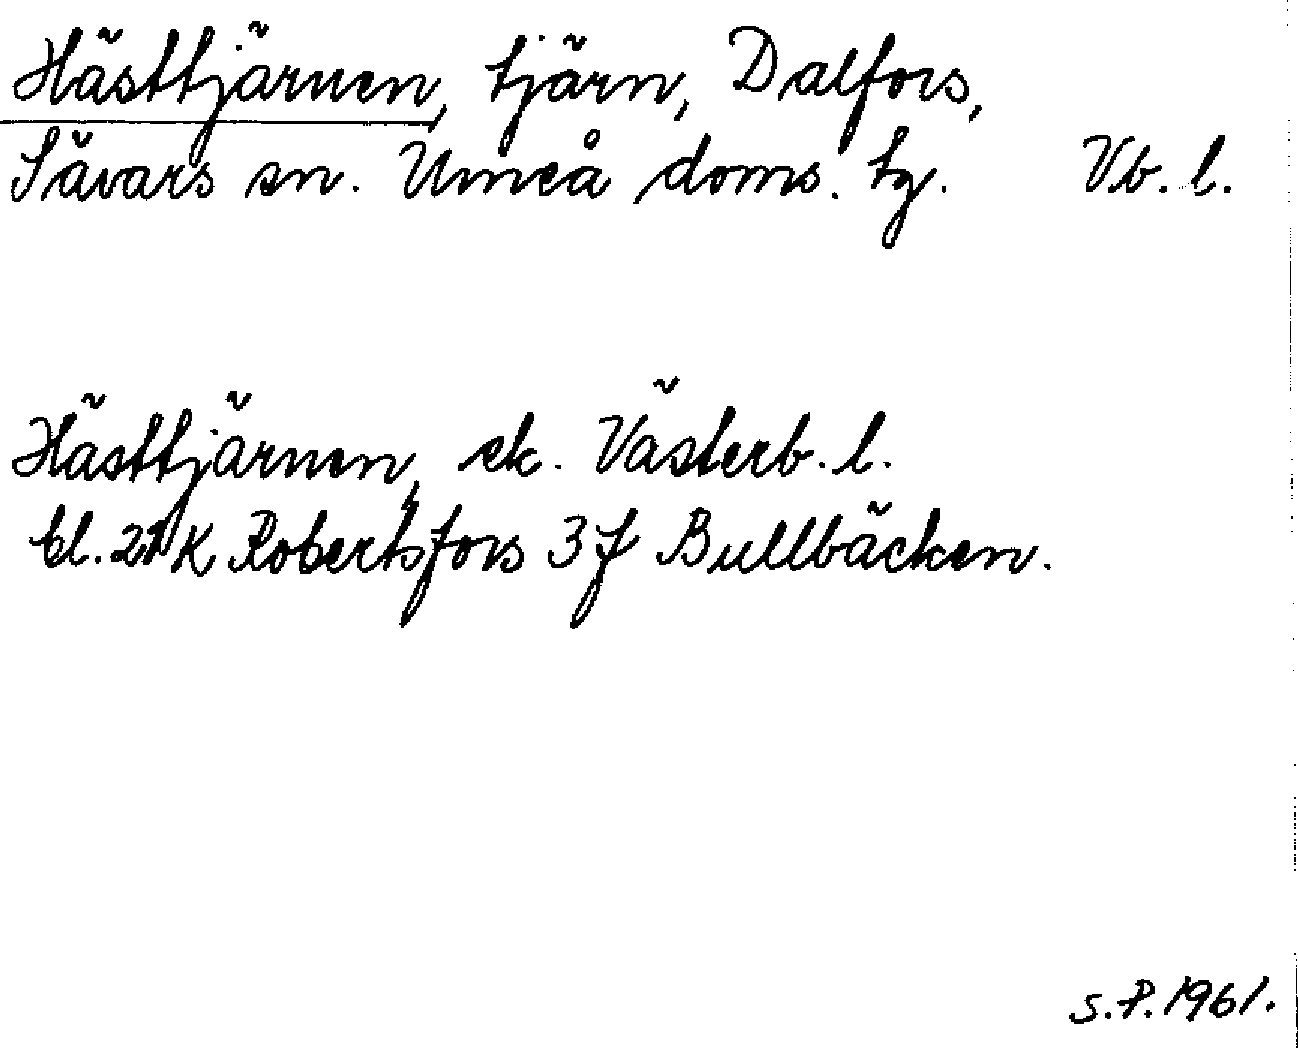 Hästtjärnen, tjärn, Dalfors,
Sävars sn. Umeå doms. tg. Vb. l.
Hästtjärnen, ek. Västerb. l.
bl. 21 K Robertsfors 3 f Bullbäcken.
S.P. 1961.